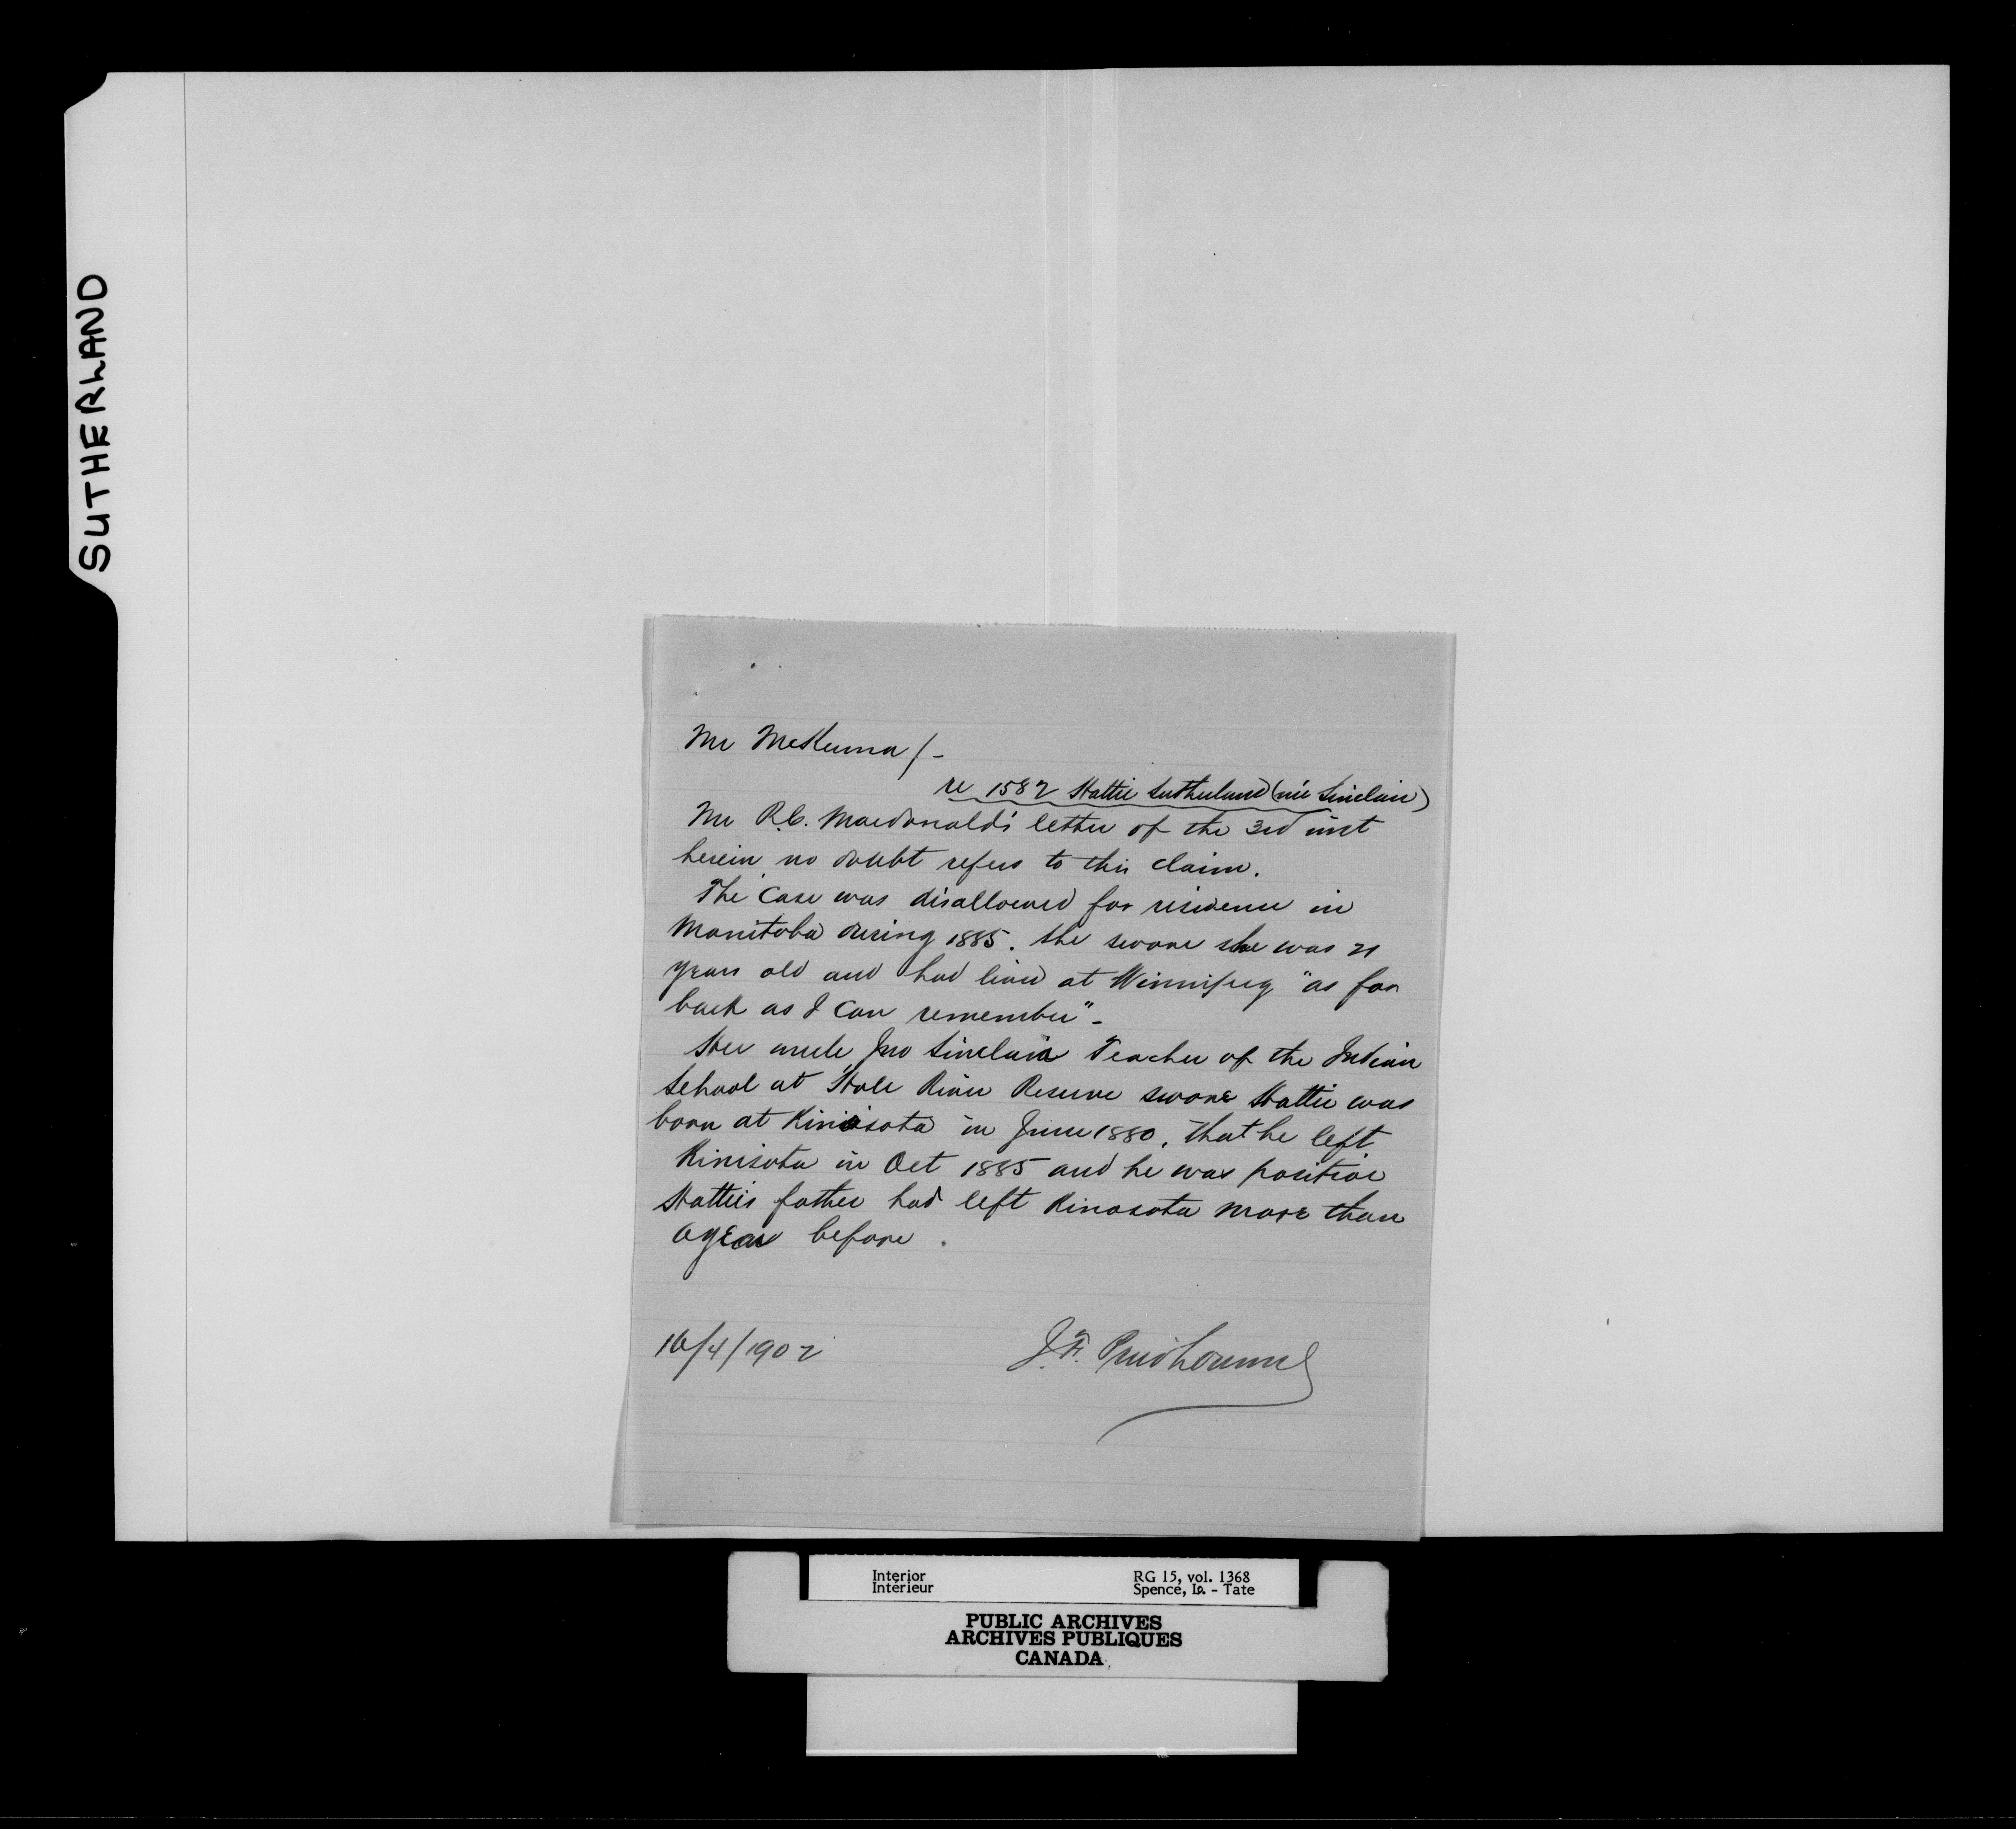 SUTHERLAND
Mr McKenna/-
re 1582 Hattie Sutherland (née Sinclair)
Mr R.C. Macdonald's letter of the 3rd inst
herein no doubt refers to this claim.
The case was disallowed for residence in
Manitoba during 1885. She swore she was 21
years old and had lived at Winnipeg "as far
back as I can remember"-
Her uncle Jno Sinclair Teacher of the Indian
School at Hole River Reserve swore Hattie was
born at Kinisota in June 1880, that he left
Kinisota in Oct 1885 and he was positive
Hattie's father had left Kinosota more than
a year before.
16/4/1902 J.F. Prudhomme
Interior RG 15, vol. 1368
Intérieur Spence, Is. - Tate
PUBLIC ARCHIVES
ARCHIVES PUBLIQUES
CANADA